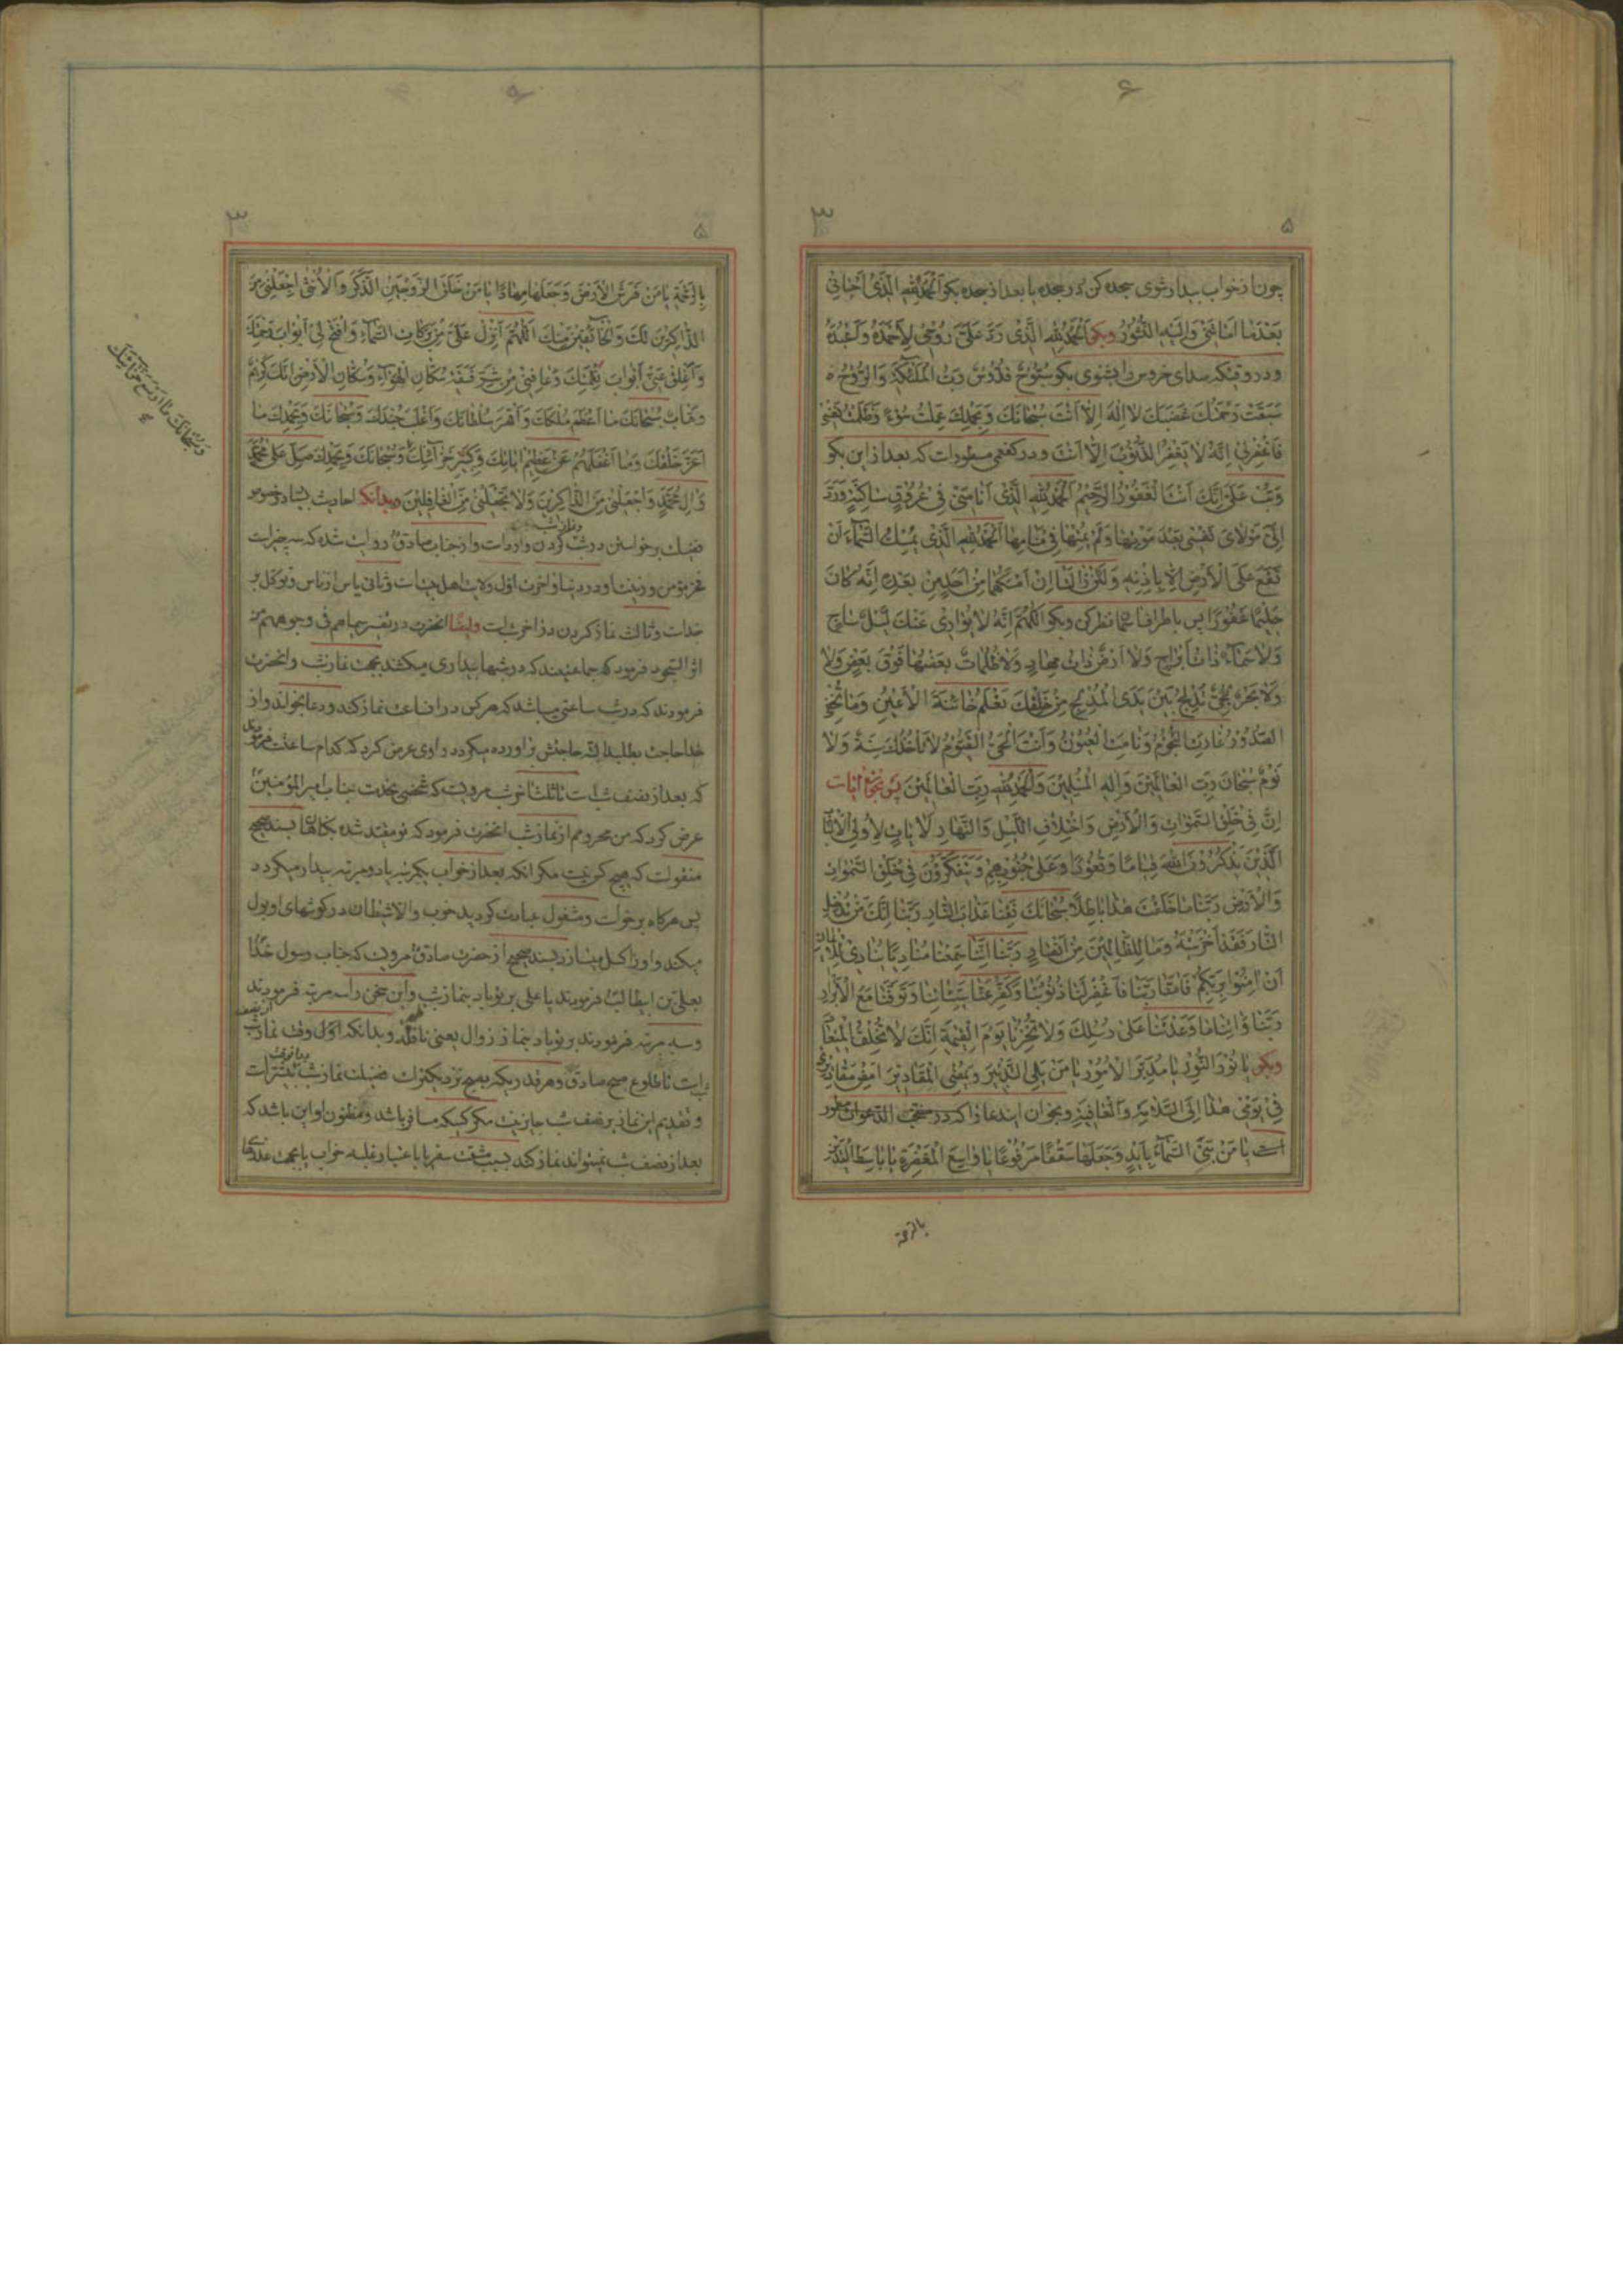 ۶
۳ ۵
چون از خواب بیدار شوی سجده کن در سجده یا بعد از سجده بکو اَلْحَمْدُ لِلّٰهِ الَّذی اَحْیانی
بَعْدَمٰا اَمٰاتَنی وَاِلَیْهِ النُّشُورُ وبکو اَلْحَمْدُ لِلّٰهِ الَّذی رَدَّ عَلَیَّ رُوحی لِاَحْمَدَهُ وَاَعْبُدَهُ
ودر وقتیکه صدای خروس را بشنوی بکو سُبُّوحٌ قُدُّوسٌ رَبُّ الْمَلٰئِکَةِ وَالرُّوحِ
سَبَقَتْ رَحْمَتُکَ غَضَبَکَ لٰا اِلٰهَ اِلّٰا اَنْتَ سُبْحٰانَکَ وَبِحَمْدِکَ عَمِلْتُ سُوءً وَظَلَمْتُ نَفْسی
فَاغْفِرْلی اِنَّهُ لٰا یَغْفِرُ الذُّنُوبَ اِلّٰا اَنْتَ ودر کفعمی مسطورات که بعد از این بکو
وَتُبْ عَلَیَّ اِنَّکَ اَنْتَ الْغَفُورُ الرَّحیمُ اَلْحَمْدُ لِلّٰهِ الَّذی اَنٰامَنی فی عُرُوقٍ سٰاکِنَةٍ وَرَدَّ
اِلَیَّ مَوْلٰایَ نَفْسی بَعْدَ مَوْتِهٰا وَلَمْ یُمِتْهٰا فی مَنٰامِهٰا اَلْحَمْدُ لِلّٰهِ الَّذی یُمْسِکُ السَّمٰاءَ اَنْ
تَقَعَ عَلَی الْاَرْضِ اِلّٰا بِاِذْنِهِ وَلَئِنْ زٰالَتٰا اِنْ اَمْسَکَهُمٰا مِنْ اَحَدٍ مِنْ بَعْدِهِ اِنَّهُ کٰانَ
حَلیمًا غَفُورًا پس باطراف سما نظر کن وبکو اَللّٰهُمَّ اِنَّهُ لٰا یُوٰاری عَنْکَ لَیْلٌ سٰاجٍ
وَلٰا سَمٰاءٌ ذٰاتُ اَبْرٰاجٍ وَلٰا اَرْضٌ ذٰاتُ مِهٰادٍ وَلٰا ظُلُمٰاتٌ بَعْضُهٰا فَوْقَ بَعْضٍ وَلٰا
وَلٰا بَحْرٌ لُجِّیٌّ تُدْلِجُ بَیْنَ یَدَیِ الْمُدْلِجِ مِنْ خَلْقِکَ تَعْلَمُ خٰائِنَةَ الْاَعْیُنِ وَمٰا تُخْفِی
الصُّدُورُ غٰارَتِ النُّجُومُ وَنٰامَتِ الْعُیُونُ وَاَنْتَ الْحَیُّ الْقَیُّومُ لٰا تَأْخُذُکَ سِنَةٌ وَلٰا
نَوْمٌ سُبْحٰانَ رَبِّ الْعٰالَمینَ وَاِلٰهِ الْمُسْلِمینَ وَالْحَمْدُ لِلّٰهِ رَبِّ الْعٰالَمینَ پس بخوان پنج آیات
اِنَّ فی خَلْقِ السَّمٰوٰاتِ وَالْاَرْضِ وَاخْتِلٰافِ اللَّیْلِ وَالنَّهٰارِ لَاٰیٰاتٍ لِاُولِی الْاَلْبٰابِ
اَلَّذینَ یَذْکُرُونَ اللّٰهَ قِیٰامًا وَقُعُودًا وَعَلیٰ جُنُوبِهِمْ وَیَتَفَکَّرُونَ فی خَلْقِ السَّمٰوٰاتِ
وَالْاَرْضِ رَبَّنٰا مٰا خَلَقْتَ هٰذٰا بٰاطِلًا سُبْحٰانَکَ فَقِنٰا عَذٰابَ النّٰارِ رَبَّنٰا اِنَّکَ مَنْ تُدْخِلِ
النّٰارَ فَقَدْ اَخْزَیْتَهُ وَمٰا لِلظّٰالِمینَ مِنْ اَنْصٰارٍ رَبَّنٰا اِنَّنٰا سَمِعْنٰا مُنٰادِیًا یُنٰادی لِلْایمٰانِ
اَنْ اٰمِنُوا بِرَبِّکُمْ فَاٰمَنّٰا رَبَّنٰا فَاغْفِرْ لَنٰا ذُنُوبَنٰا وَکَفِّرْ عَنّٰا سَیِّئٰاتِنٰا وَتَوَفَّنٰا مَعَ الْاَبْرٰارِ
رَبَّنٰا وَاٰتِنٰا مٰا وَعَدْتَنٰا عَلیٰ رُسُلِکَ وَلٰا تُخْزِنٰا یَوْمَ الْقِیٰمَةِ اِنَّکَ لٰا تُخْلِفُ الْمیعٰادَ
وبکو یٰا نُورَ النُّورِ یٰا مُدَبِّرَ الْاُمُورِ یٰا مَنْ یَلِی التَّدْبیرَ وَیُمْضِی الْمَقٰادیرَ اَمْضِ مَقٰادیری
فی یَوْمی هٰذٰا اِلَی السَّلٰامَةِ وَالْعٰافِیَةِ وبخوان ایندعا را که در منتخب الدعوات مسطور
است یٰا مَنْ بَنَی السَّمٰاءَ بِاَیْدٍ وَجَعَلَهٰا سَقْفًا مَرْفُوعًا یٰا وٰاسِعَ الْمَغْفِرَةِ یٰا بٰاسِطَ الْیَدَیْنِ
بالرحمة
۳ ۵
بِالرَّحْمَةِ یٰا مَنْ فَرَشَ الْاَرْضَ وَجَعَلَهٰا مِهٰادًا یٰا مَنْ خَلَقَ الزَّوْجَیْنِ الذَّکَرَ وَالْاُنْثیٰ اِجْعَلْنی مِنَ
الذّٰاکِرینَ لَکَ وَالْخٰائِفینَ مِنْکَ اَللّٰهُمَّ اَنْزِلْ عَلَیَّ مِنْ بَرَکٰاتِ السَّمٰاءِ وَافْتَحْ لی اَبْوٰابَ رَحْمَتِکَ
وَاَغْلِقْ عَنّی اَبْوٰابَ نِقْمَتِکَ وَعٰافِنی مِنْ شَرِّ فَسَقَةِ سُکّٰانِ الْهَوٰاءِ وَسُکّٰانِ الْاَرْضِ اِنَّکَ کَریمٌ
وَهّٰابٌ سُبْحٰانَکَ مٰا اَعْظَمَ مُلْکَکَ وَاَقْهَرَ سُلْطٰانَکَ وَاَغْلَبَ جُنْدَکَ وَسُبْحٰانَکَ وَبِحَمْدِکَ مٰا
اَعَزَّ خَلْقَکَ وَمٰا اَغْفَلَهُمْ عَنْ عَظیمِ اٰیٰاتِکَ وَکَبیرِ خَزٰائِنِکَ وَسُبْحٰانَکَ وَبِحَمْدِکَ صَلِّ عَلیٰ مُحَمَّدٍ
وَاٰلِ مُحَمَّدٍ وَاجْعَلْنی مِنَ الذّٰاکِرینَ وَلٰا تَجْعَلْنی مِنَ الْغٰافِلینَ وبدانکه احادیث بسیار در خصوص
فضیلت برخواستن در شب کردن وارد است واز جناب صادق روایت شده که سه چیز است
فخر مؤمن وزینت او در دنیا وآخرت اول ولایت اهل بیت است وثانی یاس از ناس وتوکل بر
خداست وثالث نماز کردن در آخر شب است وایضًا آنحضرت در تفسیر سیماهم فی وجوههم من
اثر السجود فرمود که جماعتیند که در شبها بیداری میکشند بجهت نماز شب وآنحضرت
فرمودند که در شب ساعتی میباشد که هر کس در انساعت نماز کند ودعا بخواند واز
خدا حاجت بطلبد البته حاجتش براورده میکردد راوی عرض کرد که کدام ساعتست فرمود
که بعد از نصف شب است تا ثلث آخر شب مرویست که شخصی بخدمت جناب امیرالمؤمنین
عرض کرد که من محرومم از نماز شب آنحضرت فرمود که تو مقید شده بکناهان بسند صحیح
منقولست که هیچ کس نیست مکر انکه بعد از خواب یکمرتبه یا دو مرتبه بیدار میکردد
پس هرکاه برخواست ومشغول عبادت کردید خوب والا شیطان در کوشهای او بول
میکند واورا کسل میسازد بسند صحیح از حضرت صادق مرویست که جناب رسول خدا
بعلی بن ابیطالب فرمودند یا علی بر تو باد بنماز شب واین سخن را سه مرتبه فرمودند
وسه مرتبه فرمودند بر تو باد بنماز زوال یعنی نافله وبدانکه اول وقت نماز شب
است تا طلوع صبح صادق وهر قدریکه بصبح نزدیکتر است فضیلت نماز شب بیشتر است
وتقدیم این نماز بر نصف شب جایز نیست مکر کسیکه مسافر باشد ومظنون او این باشد که
بعد از نصف شب نمیتواند نماز کند بسبب مشقت سفر یا باعتبار غلبه خواب یا بجهت عذری
وَسُبْحٰانَکَ مٰا اَوْسَعَ خَزٰائِنَکَ